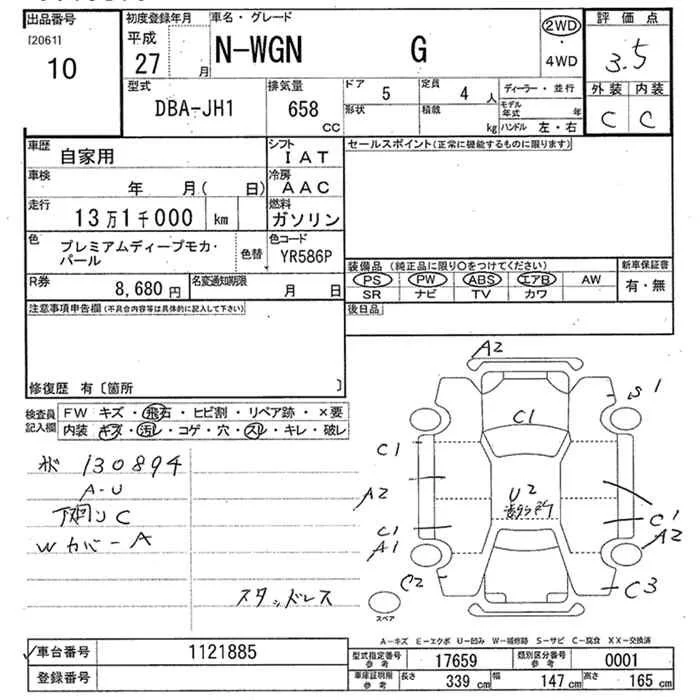 出品番号 初度登録年月 車名・グレード 評価点
[2061] 平成 2WD
10 27 月 N-WGN G 4WD 3.5
型式 排気量 ドア 5 定員 4 人 ディーラー・並行 外装 内装
DBA-JH1 658 cc 形状 積載 kg モデル年式 年 C C
ハンドル 左・右
車歴 自家用 シフト IAT セールスポイント(正常に機能するものに限ります)
車検 年 月( 日) 冷房 AAC
走行 13万1千000 km 燃料 ガソリン
色 プレミアムディープモカ・パール 色替 色コード YR586P
装備品(純正品に限り○をつけてください) 新車保証書
PS PW ABS エアB AW 有・無
SR ナビ TV カワ
R券 8,680円 名変通知期限 月 日
後日品
注意事項申告欄(不具合内容等は具体的に記入して下さい)
修復歴 有〔箇所 〕
検査員記入欄 FW キズ・飛石・ヒビ割・リペア跡・×要
内装 キズ・汚レ・コゲ・穴・スレ・キレ・破レ
130894
A-U
下廻りC
Wカバ-A
スタッドレス
A2
S1
C1
C1
A2
U2
C1
A1
C1
A2
C2
C3
スペア
A-キズ E-エクボ U-凹み W-補修跡 S-サビ C-腐食 XX-交換済
車台番号 1121885 型式指定番号 参考 17659 類別区分番号 参考 0001
登録番号 車庫証明用 参考 長さ 339 cm 幅 147 cm 高さ 165 cm